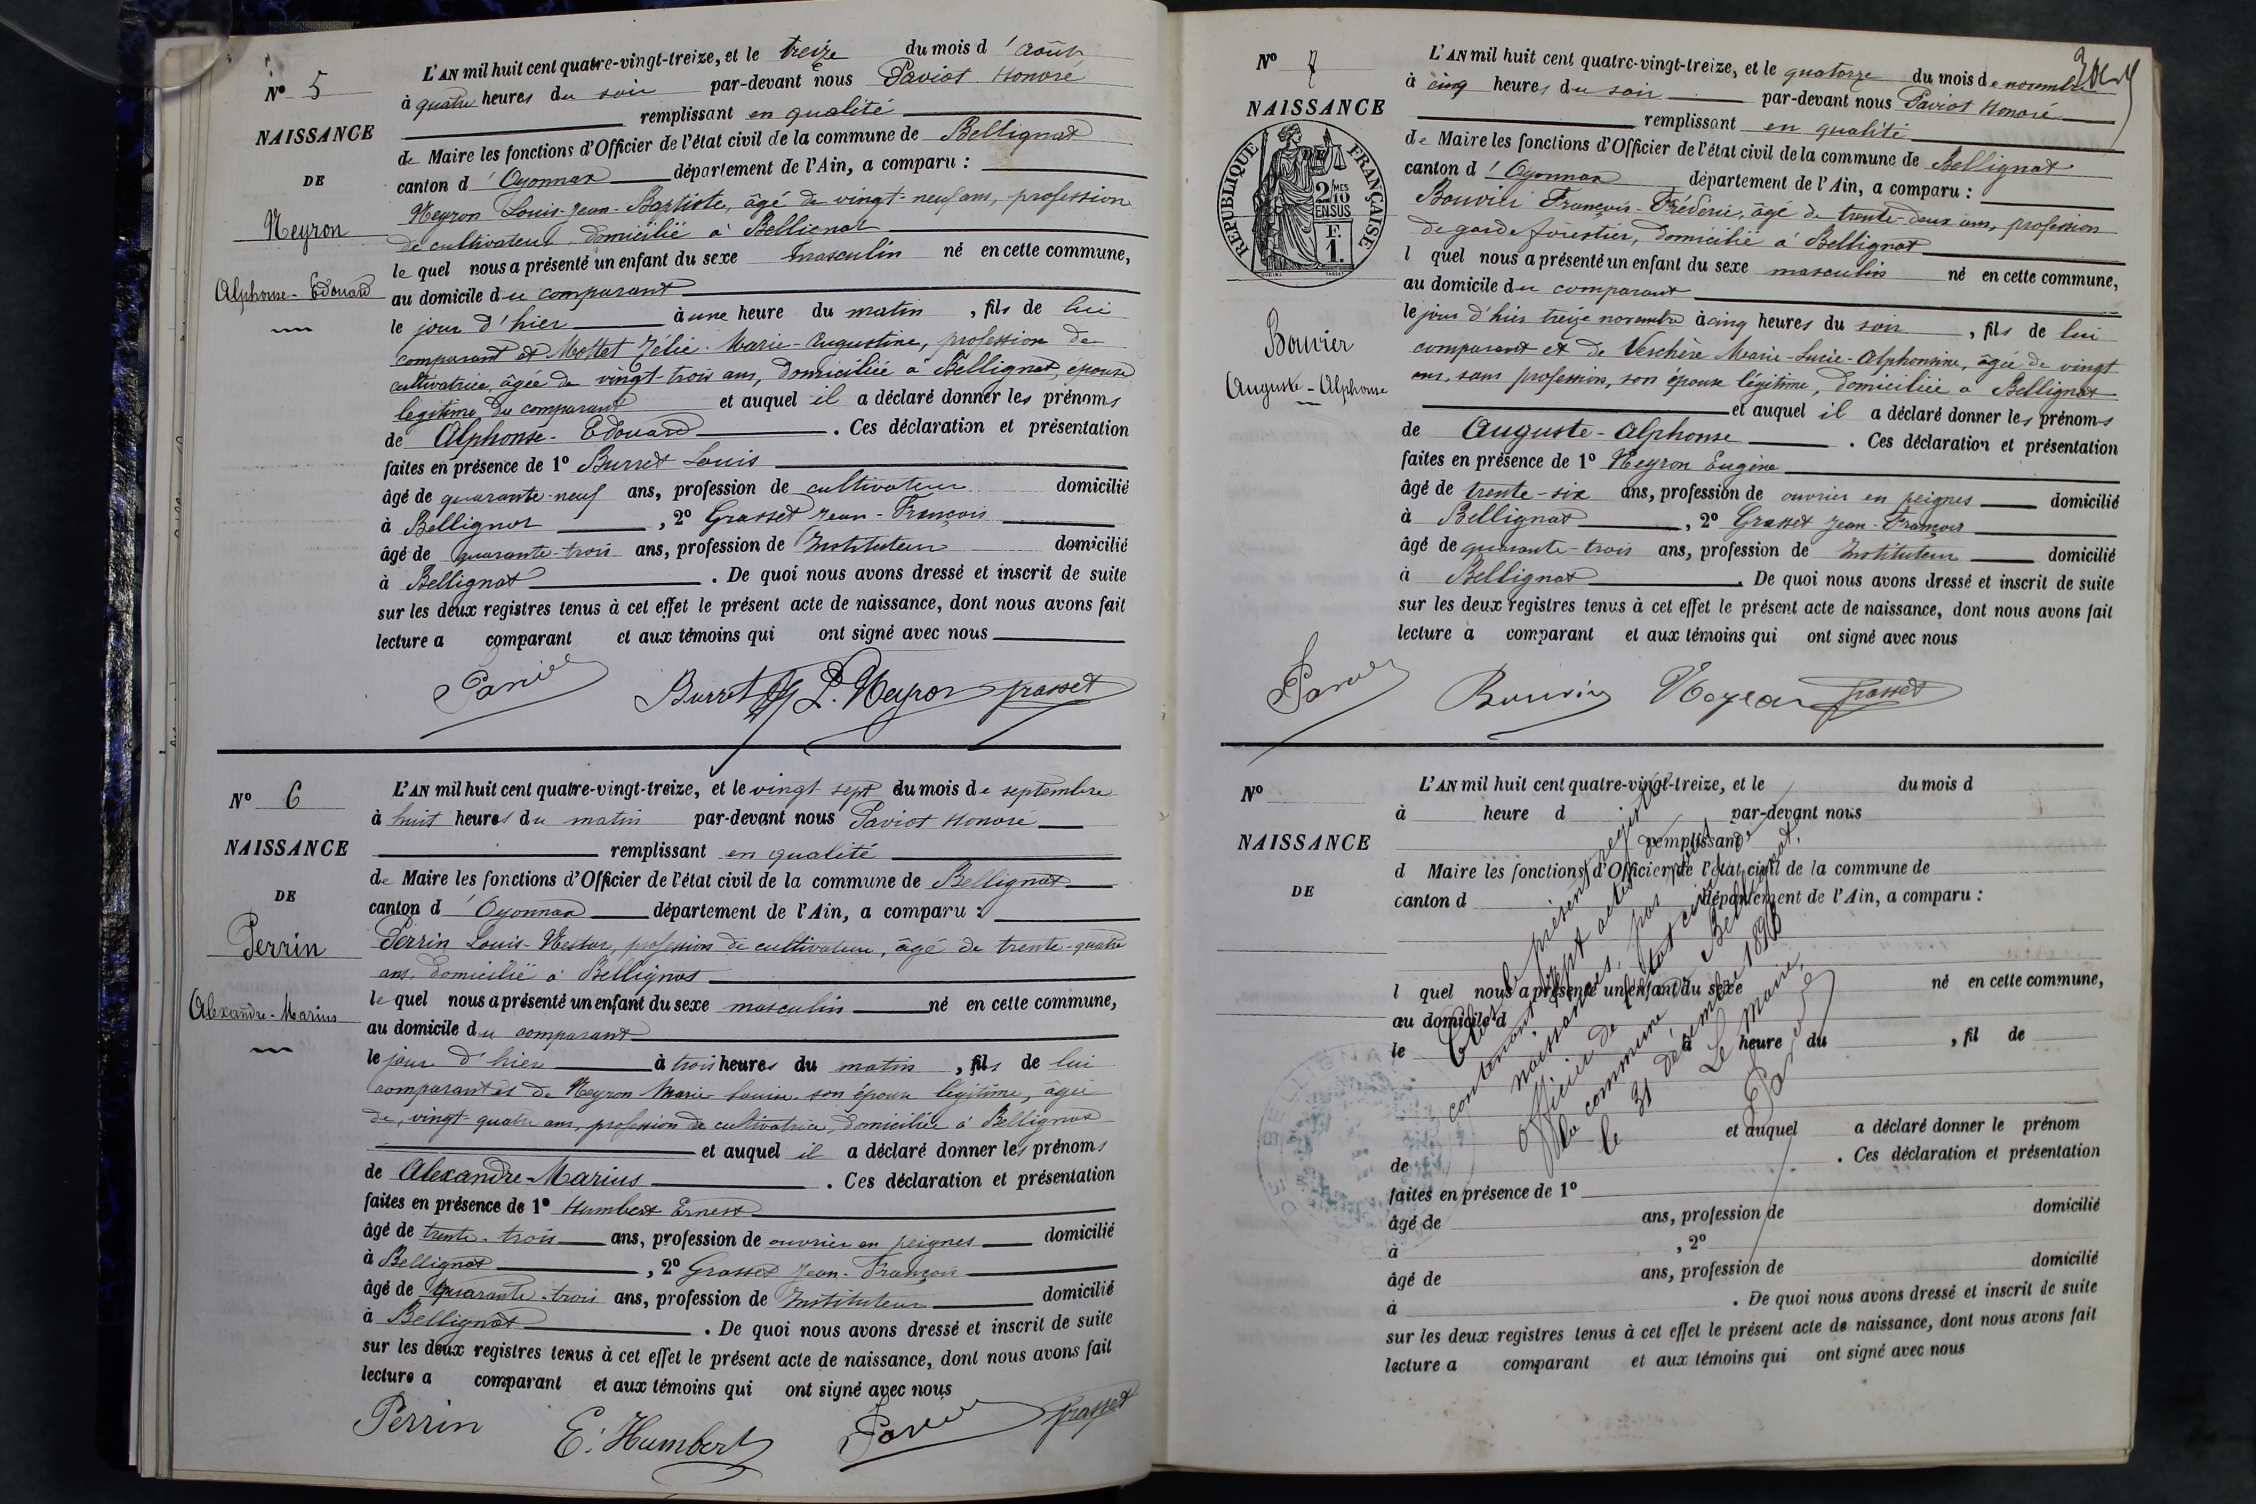 Nº 5
NAISSANCE
DE
Neyron
Alphonse-Edouard
L'AN mil huit cent quatre-vingt-treize, et le treize du mois d'Août
à quatre heures du soir par-devant nous Paviot Honoré
remplissant en qualité
de Maire les fonctions d'Officier de l'état civil de la commune de Bellignat
canton d'Oyonnax département de l'Ain, a comparu :
Neyron Louis-Jean-Baptiste, âgé de vingt-neuf ans, profession
de cultivateur, domicilié à Bellignat
le quel nous a présenté un enfant du sexe masculin né en cette commune,
au domicile du comparant
le jour d'hier à une heure du matin, fils de lui
comparant et Mottet Zélie-Marie-Augustine, profession de
cultivatrice, âgée de vingt-trois ans, domiciliée à Bellignat, épouse
légitime du comparant et auquel il a déclaré donner les prénoms
de Alphonse-Edouard. Ces déclaration et présentation
faites en présence de 1º Burret Louis
âgé de quarante-neuf ans, profession de cultivateur domicilié
à Bellignat, 2º Grasset Jean-François
âgé de quarante-trois ans, profession de Instituteur domicilié
à Bellignat. De quoi nous avons dressé et inscrit de suite
sur les deux registres tenus à cet effet le présent acte de naissance, dont nous avons fait
lecture a comparant et aux témoins qui ont signé avec nous
Paviot Burret L. Neyron Grasset
Nº 6
NAISSANCE
DE
Perrin
Alexandre-Marius
L'AN mil huit cent quatre-vingt-treize, et le vingt sept du mois de septembre
à huit heures du matin par-devant nous Paviot Honoré
remplissant en qualité
de Maire les fonctions d'Officier de l'état civil de la commune de Bellignat
canton d'Oyonnax département de l'Ain, a comparu :
Perrin Louis-Nestor, profession de cultivateur, âgé de trente-quatre
ans, domicilié à Bellignat
le quel nous a présenté un enfant du sexe masculin né en cette commune,
au domicile du comparant
le jour d'hier à trois heures du matin, fils de lui
comparant et de Neyron Marie Louise son épouse légitime, âgée
de vingt-quatre ans, profession de cultivatrice, domiciliée à Bellignat
et auquel il a déclaré donner les prénoms
de Alexandre-Marius. Ces déclaration et présentation
faites en présence de 1º Humbert Ernest
âgé de trente-trois ans, profession de ouvrier en peignes domicilié
à Bellignat, 2º Grasset Jean-François
âgé de quarante-trois ans, profession de Instituteur domicilié
à Bellignat. De quoi nous avons dressé et inscrit de suite
sur les deux registres tenus à cet effet le présent acte de naissance, dont nous avons fait
lecture a comparant et aux témoins qui ont signé avec nous
Perrin E. Humbert Paviot Grasset
Nº 7
NAISSANCE
RÉPUBLIQUE FRANÇAISE
2/10 MES
EN SUS
F.
1.
Bouvier
Auguste-Alphonse
L'AN mil huit cent quatre-vingt-treize, et le quatorze du mois de novembre
à cinq heures du soir par-devant nous Paviot Honoré
remplissant en qualité
de Maire les fonctions d'Officier de l'état civil de la commune de Bellignat
canton d'Oyonnax département de l'Ain, a comparu :
Bouvier François-Frédéric, âgé de trente-deux ans, profession
de garde forestier, domicilié à Bellignat
l quel nous a présenté un enfant du sexe masculin né en cette commune,
au domicile du comparant
le jour d'hier treize novembre à cinq heures du soir, fils de lui
comparant et de Verchère Marie-Lucie-Alphonsine, âgée de vingt
ans, sans profession, son épouse légitime, domiciliée à Bellignat
et auquel il a déclaré donner les prénoms
de Auguste-Alphonse. Ces déclaration et présentation
faites en présence de 1º Neyron Eugène
âgé de trente-six ans, profession de ouvrier en peignes domicilié
à Bellignat, 2º Grasset Jean-François
âgé de quarante-trois ans, profession de Instituteur domicilié
à Bellignat. De quoi nous avons dressé et inscrit de suite
sur les deux registres tenus à cet effet le présent acte de naissance, dont nous avons fait
lecture à comparant et aux témoins qui ont signé avec nous
Paviot Bouvier Neyron Grasset
Nº
NAISSANCE
DE
L'AN mil huit cent quatre-vingt-treize, et le du mois d
à heure d par-devant nous
remplissant
d Maire les fonctions d'Officier de l'état civil de la commune de
canton d département de l'Ain, a comparu :
l quel nous a présenté un enfant du sexe né en cette commune,
au domicile d
le à heure du , fil de
et auquel a déclaré donner le prénom
de . Ces déclaration et présentation
faites en présence de 1º
âgé de ans, profession de domicilié
à , 2º
âgé de ans, profession de domicilié
à . De quoi nous avons dressé et inscrit de suite
sur les deux registres tenus à cet effet le présent acte de naissance, dont nous avons fait
lecture a comparant et aux témoins qui ont signé avec nous
Clos le présent registre
contenant sept actes de
naissances, par nous
Officier de l'état civil de
la commune de Bellignat,
le 31 décembre 1893
Le Maire,
Paviot